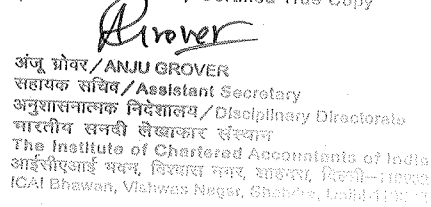 Certified True Copy
AGrover
अंजू ग्रोवर/ANJU GROVER
सहायक सचिव/Assistant Secretary
अनुशासनात्मक निदेशालय/Disciplinary Directorate
भारतीय सनदी लेखाकार संस्थान
The Institute of Chartered Accountants of India
आईसीएआई भवन, विश्वास नगर, शाहदरा, दिल्ली-110032
ICAI Bhawan, Vishwas Nagar, Shahdra, Delhi-